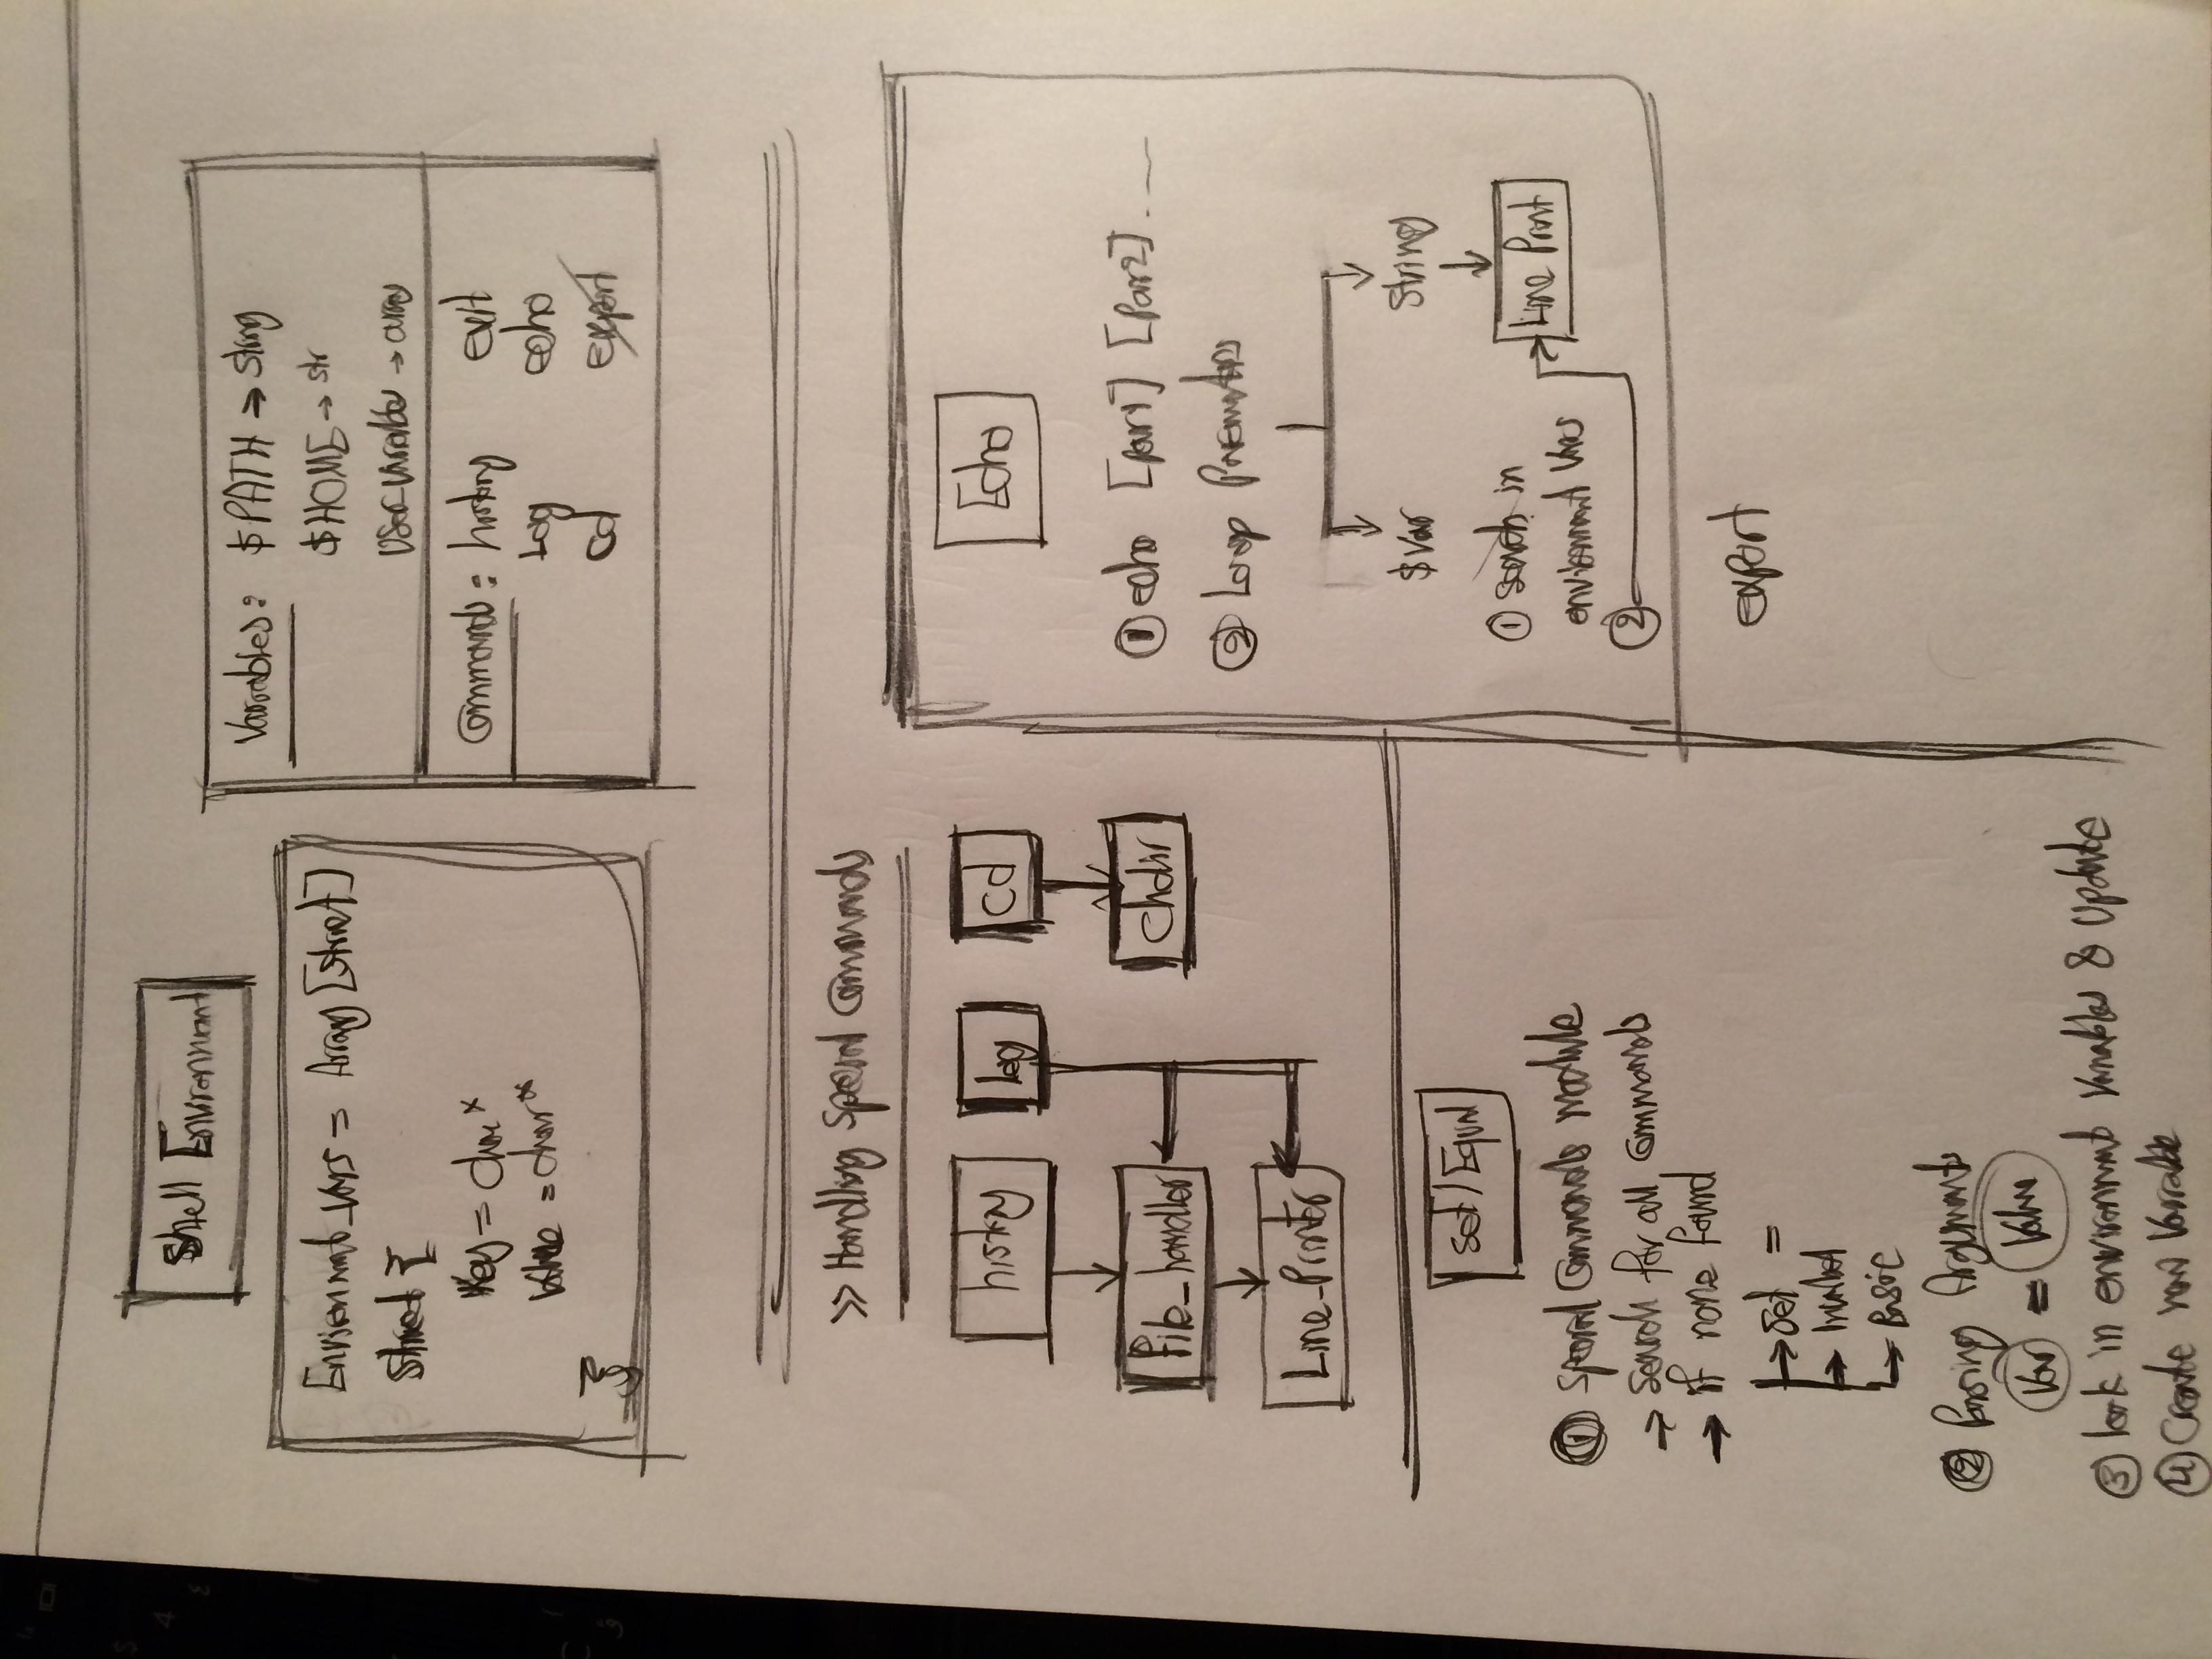 Shell Environment
Environmnt_Vars = Array [struct]
Struct {
Key = char *
Value = char *
}
Variables: $PATH → string
$HOME → str
User_variables → array
Commands: history exit
Log echo
cd export
>> Handling Special Commands
history log cd
File_handler chdir
Line_Printer
Echo
① echo [par1] [Par2] . __
② Loop Parematers
$Var String
① search in
environment Vars
Line Print
②
export
set / Equal
① Special Commands module
→ Search for all Commands
→ if none found
→ Set =
→ Invalid
→ Basic
② Parsing Arguments
Var = Value
③ look in environmnt Variables & Update
④ Create new Variable